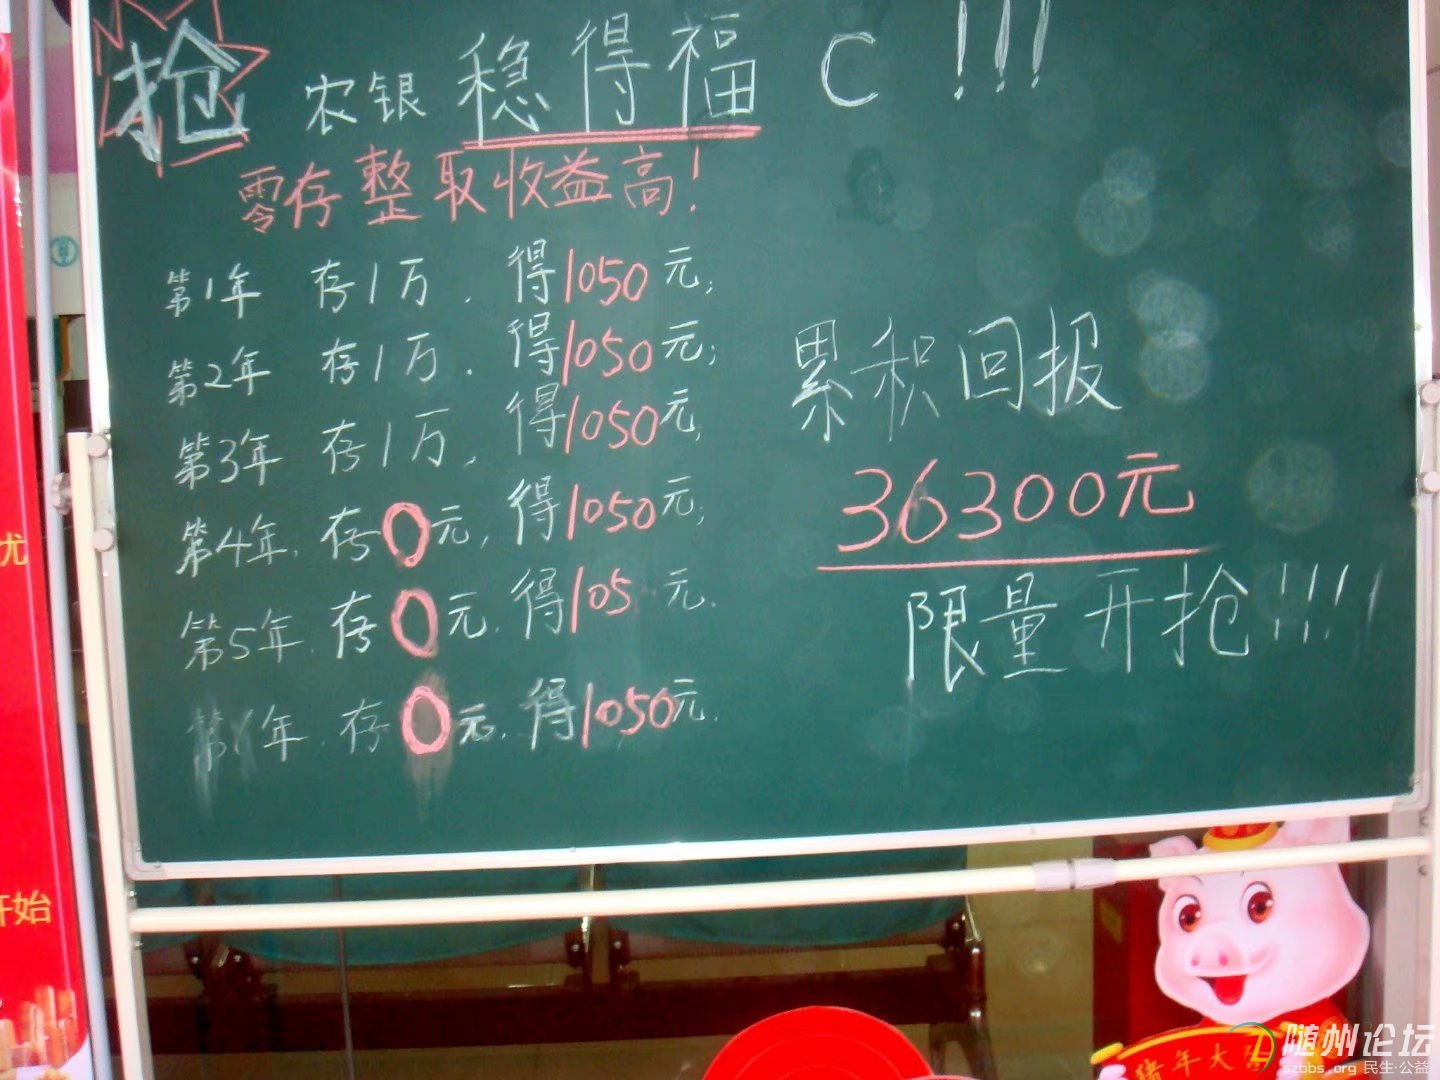 抢 农银 稳得福 C!!!
零存整取收益高!
第1年 存1万, 得1050元;
第2年 存1万, 得1050元;
第3年 存1万, 得1050元,
第4年, 存0元, 得1050元;
第5年, 存0元, 得105 元.
第 年, 存0元, 得1050元.
累积回报
36300元
限量开抢!!!!
尤
开始
猪年大
随州论坛
szbbs.org 民生·公益